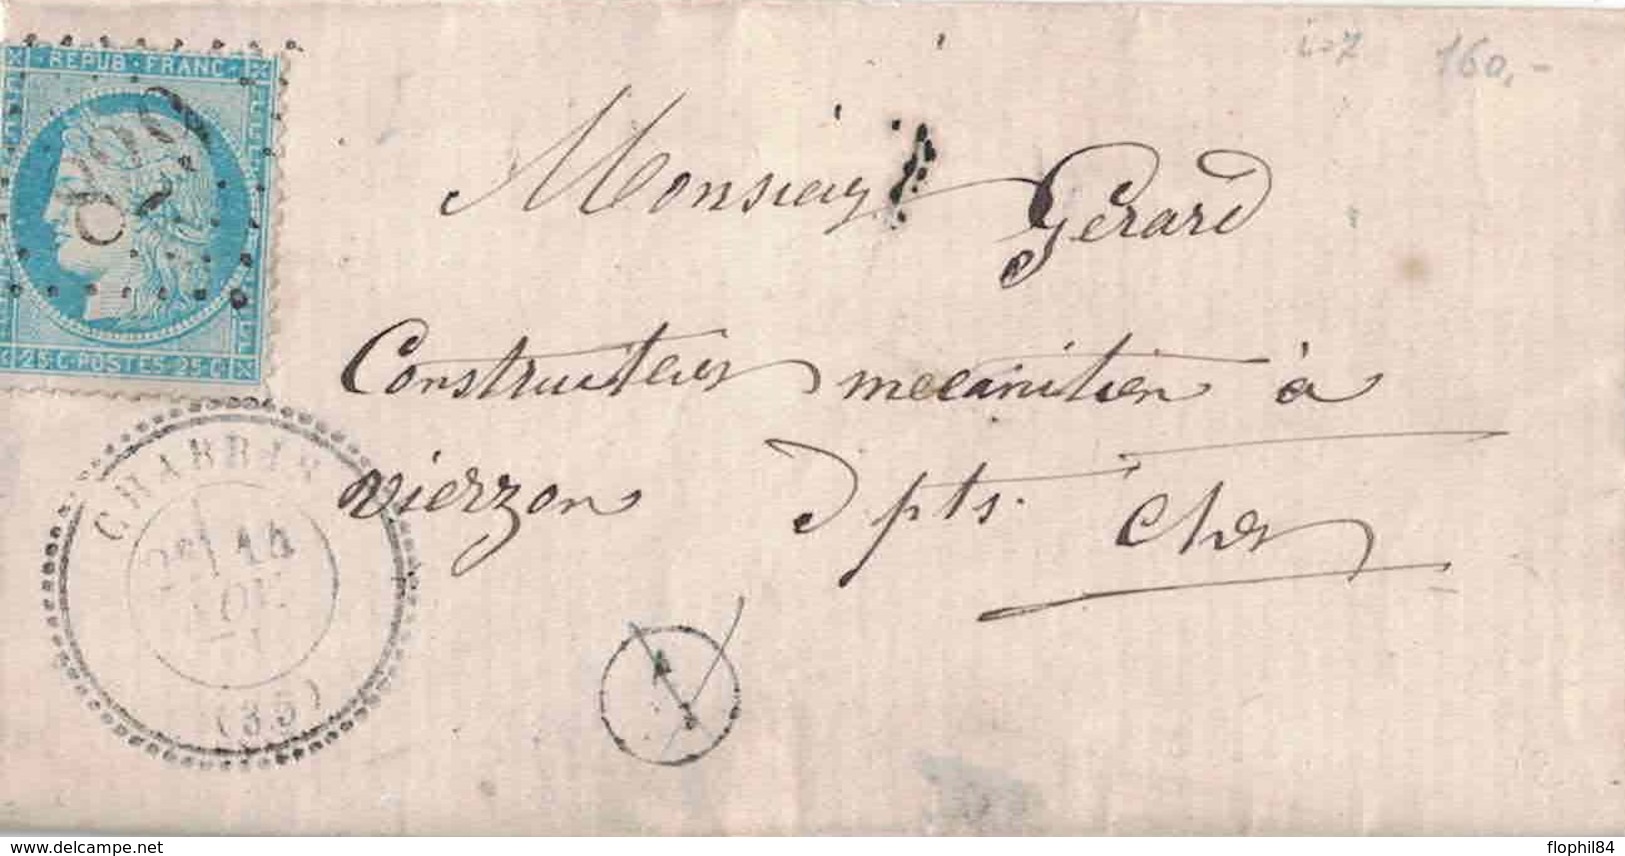 160.-
REPUB·FRANC
25·C·POSTES·25·C
Monsieur Gérard
Constructeur mecanitien à
vierzon Dpts. Cher
CHABRIS
2E 14
NOV.
71
(35)
A
delcampe.net
flophil84